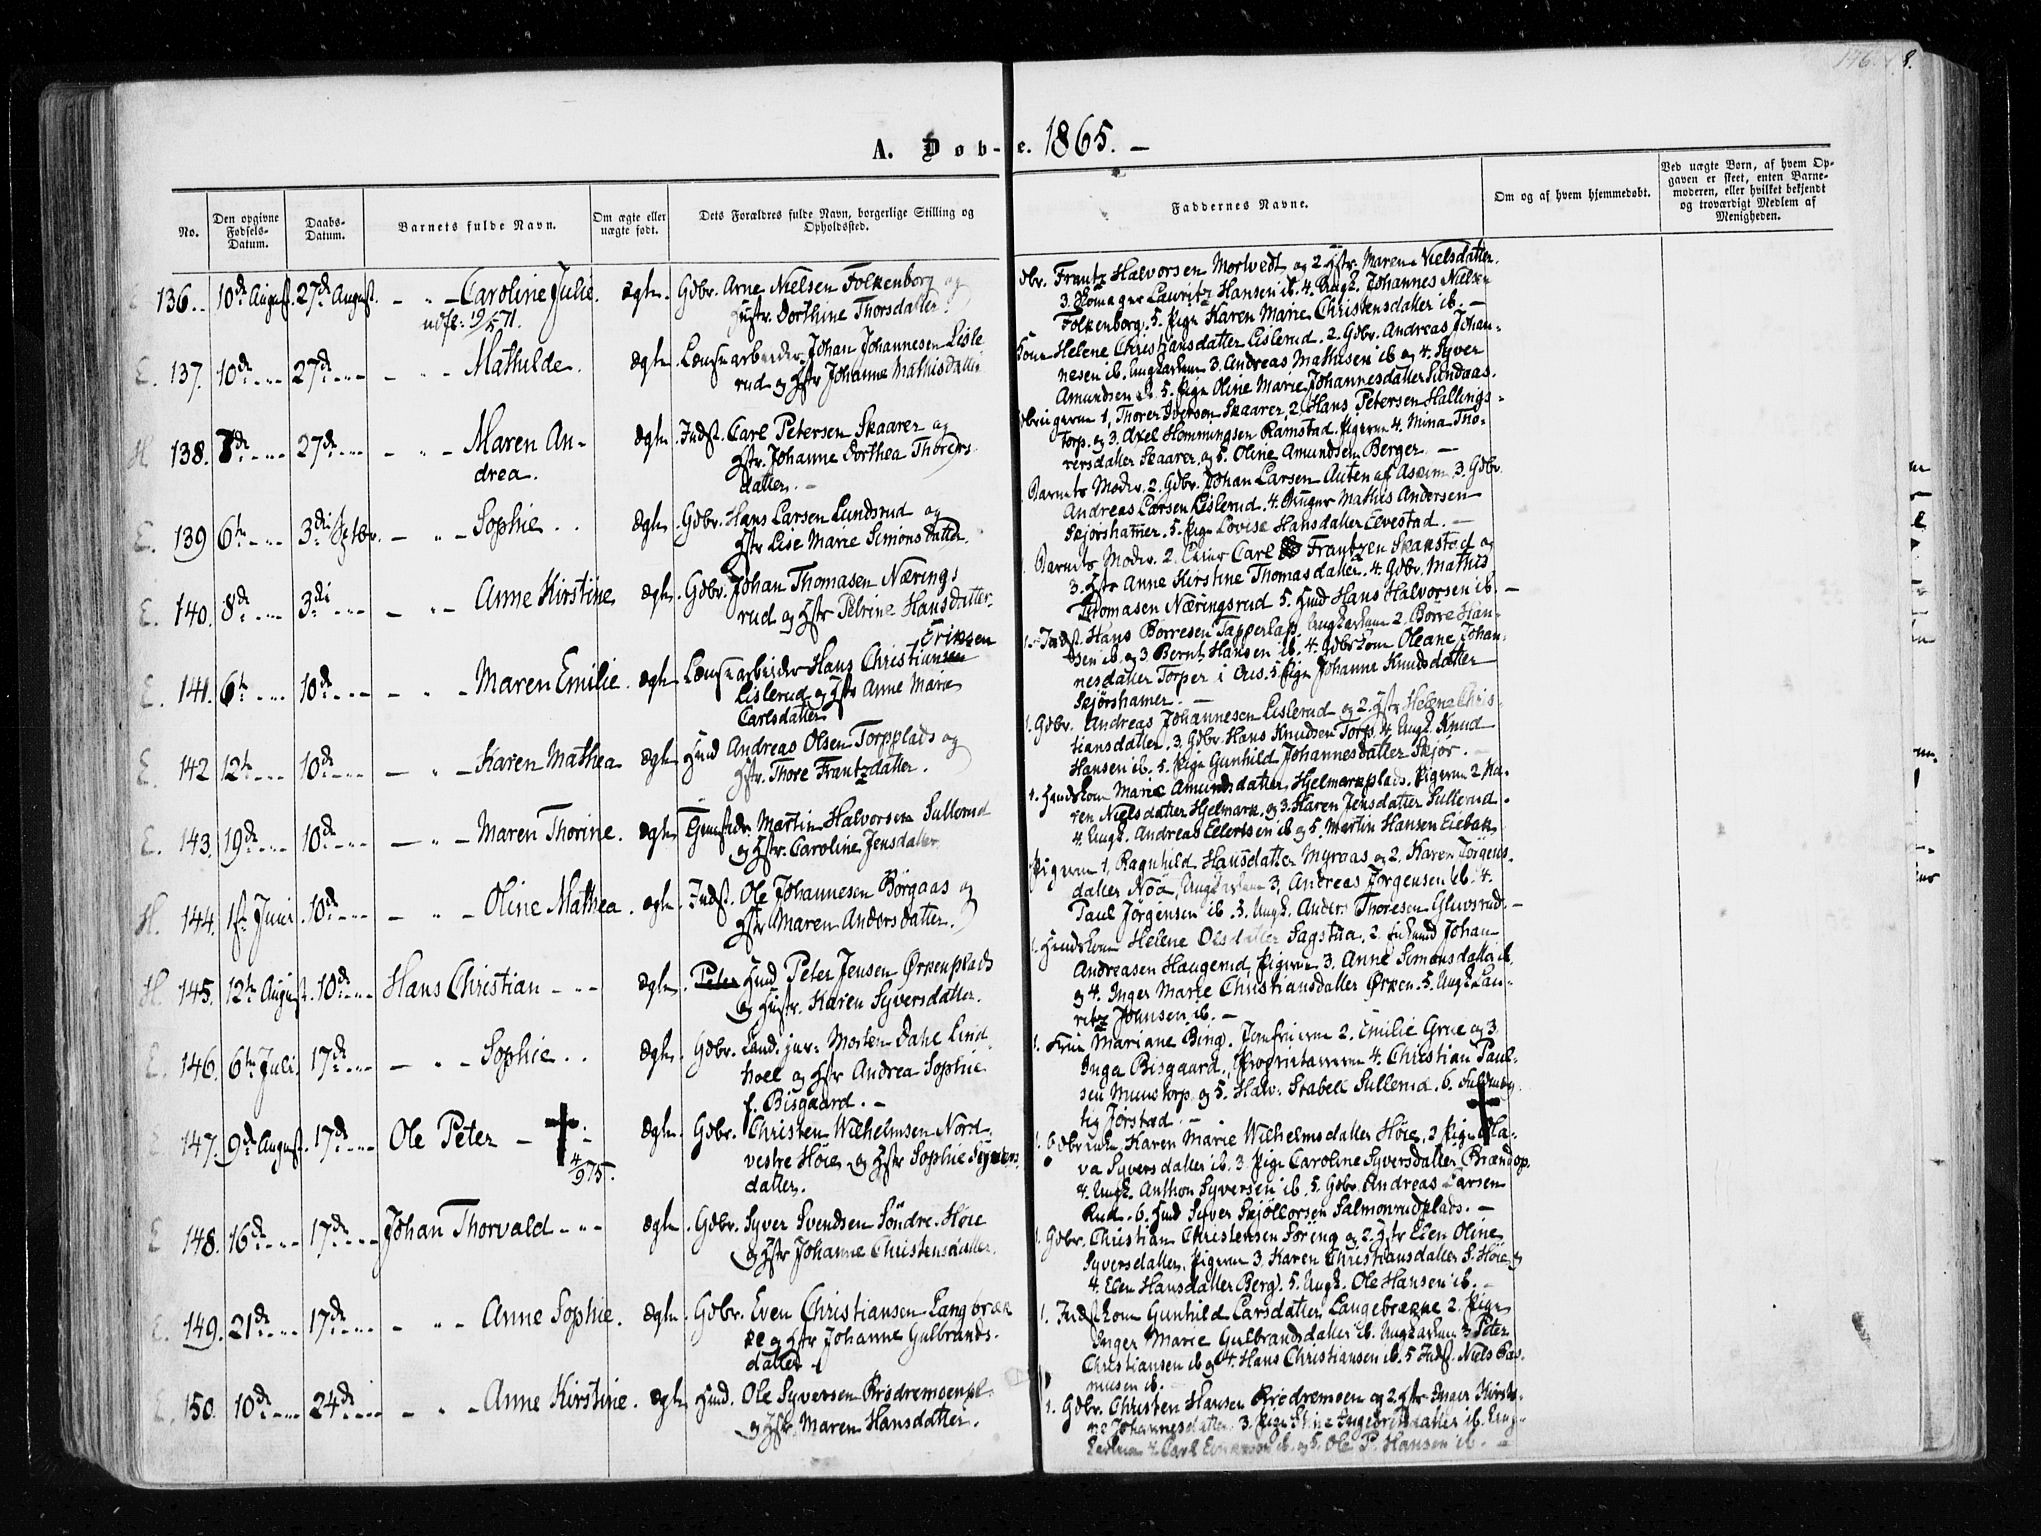 146.
8.
A. Døb-e. 1865. —
No.
Den opgivne Fødsels-Datum.
Daabs-Datum.
Barnets fulde Navn.
Om ægte eller uægte født.
Dets Forældres fulde Navn, borgerlige Stilling og Opholdssted.
Faddernes Navne.
Om og af hvem hjemmedøbt.
Ved uægte Børn, af hvem Opgaven er skeet, enten Barnemoderen, eller hvilket bekjendt og troværdigt Medlem af Menigheden.
136. 10de August. 27de August. — " — Caroline Julie. ægte. Gdbr. Arne Nielsen Folkenborg og
Hustr. Dorthine Thorsdatter.
Gdbr. Frantz Halvorsen Mortvedt og 2. Hstr. Maren Nielsdatter.
3. Lauritz Hansen ib. 4. Ungk. Johannes Nielsen
Folkenborg. 5. Pige Karen Marie Christensdatter ib. —
E. 137. 10de 27de — " — Mathilde. ægte Johan Johannesen Lisle
rud og Hstr Johanne Mathisdatter
Helene Christiansdatter Lislerud. 2. Gdbr. Andreas Johan-
nesen ib. 3. Andreas Mathisen ib og 4. Syver
Amundsen ib. 5. Pige Oline Marie Johannesdatter Sundaas.
H 138. 27de — " — Maren An-
drea.
ægte. Indst. Carl Petersen Skaarer og
Hstr. Johanne Dorthea Thorers-
datter. —
1. Thorer Iversen Skaarer, 2. Hans Petersen Hallings-
torp. og 3. Axel Hemmingsen Ramstad. Pigerne 4. Mina Tho-
rersdatter Skaarer, og 5. Oline Amundsen Berger. —
E. 139 6te 3die Septbr. — " — Sophie. . ægte. Gdbr. Hans Larsen Lundsrud og
Hstr Lise Marie Simonsdatter.
Barnets Moder. 2. Gdbr. Johan Larsen Auten af Askim. 3. Gdbr.
Andreas Larsen Lislerud. 4. Mathis Andersen
Skjørshamer. 5. Pige Lovise Hansdatter Elvestad. —
E. 140. 8de 3die — " — Anne Kirstine ægte. Gdbr. Johan Thomasen Nærings
rud og Hstr Petrine Hansdatter.
Barnets Moder. 2. Carl Frantzen Skanstad og
3. Hstr Anne Kirstine Thomasdatter. 4. Gdbr. Mathis
Thomasen Næringsrud 5. Hmd Hans Halvorsen ib. —
E. 141. 6te 10de — " — Maren Emilie. ægte. Hans Christiansen
Eriksen
Lislerud og Hstr Anne Marie
Carlsdatter
1. Indst. Hans Børresen Tapperlap. 2. Børre Han-
sen ib. og 3. Bernt Hansen ib. 4. Oleane Johan-
nesdatter Torper i Aas. 5. Pige Johanne Knudsdatter
Skjørshamer. —
E. 142 12te 10de — " — Karen Mathea ægte Hmd Andreas Olsen Torpplads og
Hstr. Thore Frantzdatter.
1. Gdbr. Andreas Johannesen Lislerud og 2. Hstr Helene Chris-
tiansdatter. 3. Gdbr. Hans Knudsen Torp. 4. Ungk. Knud
Hansen ib. 5. Pige Gunhild Johannesdatter Skjør. —
E. 143. 19de 10de — " — Maren Thorine. ægte Martin Halvorsen Sullerud
og Hstr. Caroline Jensdatter.
1. Marie Amundsdatter Hjelmarkplads. Pigerne 2. Ka-
ren Nielsdatter Hjelmark, og 3. Karen Jensdatter Sullerud.
4. Ungk. Andreas Ellertsen ib og 5. Martin Hansen Eiebak
H. 144. 1ste Juni 10de — " — Oline Mathea. ægte. Indst. Ole Johannesen Børgaas og
Hstr Maren Andersdatter.
Pigerne 1. Ragnhild Hansdatter Myraas og 2. Karen Jørgens-
datter Nøa, 3. Andreas Jørgensen ib. 4.
Paul Jørgensen ib. 5. Ungk. Anders Thoresen Gluvsrud. —
H. 145. 12te August. 10de Hans Christian — ægte. Peter Hmd Peter Jensen Ørkenplads
og Hustr. Karen Syversdatter.
1. Helene Olsdatter Sagstua, 2. Johan
Andreasen Haugerud. Pigerne 3. Anne Simonsdatter ib.
og 4. Inger Marie Christiansdatter Ørken. 5. Ungk. Lau-
ritz Johnsen ib. —
E. 146. 6te Juli. 17de — " — Sophie. . ægte. Gdbr. Cand. jur. Morten Dahl Lind-
hoel og Hstr Andrea Sophie
f. Bisgaard. —
1. Frue Mariane Bing. Jomfruerne 2. Emilie Grue og 3
Inga Bisgaard. Proprietærerne 4. Christian Paul-
sen Munstorp og 5. Halv. Stabell Sullerud. 6.
Jørstad. —
147. 9de August. 17de Ole Peter — † ægte. Gdbr. Christen Wilhelmsen Nord-
4/9 75.
vestre Høie og Hstr Sophie Syvers-
datter.
1. Karen Marie Wilhelmsdatter Høie, 2 Pige Ola-
va Syversdatter ib. 3. Pige Caroline Syversdatter Brændop.
4. Ungk. Anthon Syversen ib. 5. Gdbr. Andreas Larsen
Rud. 6. Hmd Syver Skjøllorsen Salmonrudplads. —
E 148. 16de 17de Johan Thorvald ægte Gdbr. Syver Svendsen Søndre Høie
og Hstr Johanne Christensdatter.
1. Gdbr. Christian Christensen Føring og 2. Hstr Elen Oline
Syversdatter. Pigerne 3. Karen Christiansdatter S. Høie og
4. Elen Hansdatter Berg. 5. Ungk. Ole Hansen ib. —
E. 149. 21de 17de — " — Anne Sophie. ægte. Gdbr. Even Christiansen Langbræk
ke og Hstr Johanne Gulbrands-
datter
1. Gunhild Larsdatter Langebrække 2. Pige
Inger Marie Gulbrandsdatter ib. 3 Peter
Christiansen ib og 4. Hans Christiansen ib. 5 Indst. Niels Ras-
musen ib. —
E. 150. 10de 24de — " — Anne Kirstine. ægte Hmd. Ole Syversen Brødremoenpl.
og Hstr. Maren Hansdatter.
1. Gdbr. Christen Hansen Brødremoen og 2. Hstr Kirsti-
ne Johannesdatter. 3. Pige ib. Ung-
4. Carl ib. og 5. Ole P. Hansen ib. —